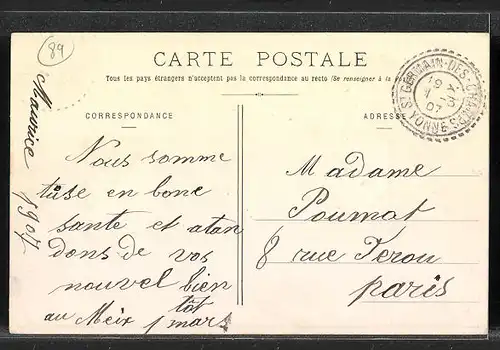 89
CARTE POSTALE
Tous les pays étrangers n'acceptent pas la correspondance au recto (Se renseigner à la
CORRESPONDANCE
ADRESSE
ST GERMAIN-DES-CHAMPS YONNE
Maurice 1907
Nous somme
tuse en bone
sante et atan
dons de vos
nouvel bien
tôt
au Meix 1 mars
Madame
Poumot
8 rue Ferou
paris